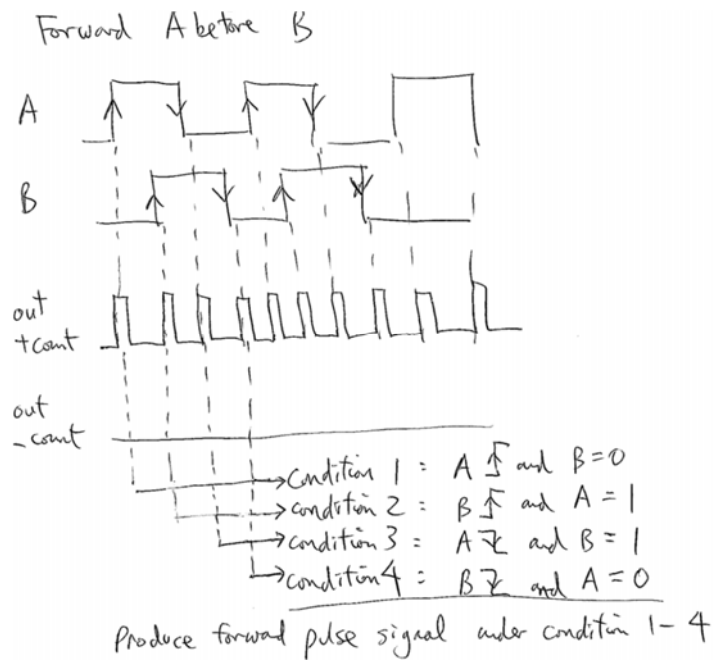 Forward A before B
A
B
out
+count
out
-count
condition 1 : A ↑ and B=0
condition 2 : B ↑ and A=1
condition 3 : A ↓ and B=1
condition 4 : B ↓ and A=0
Produce forward pulse signal under condition 1-4